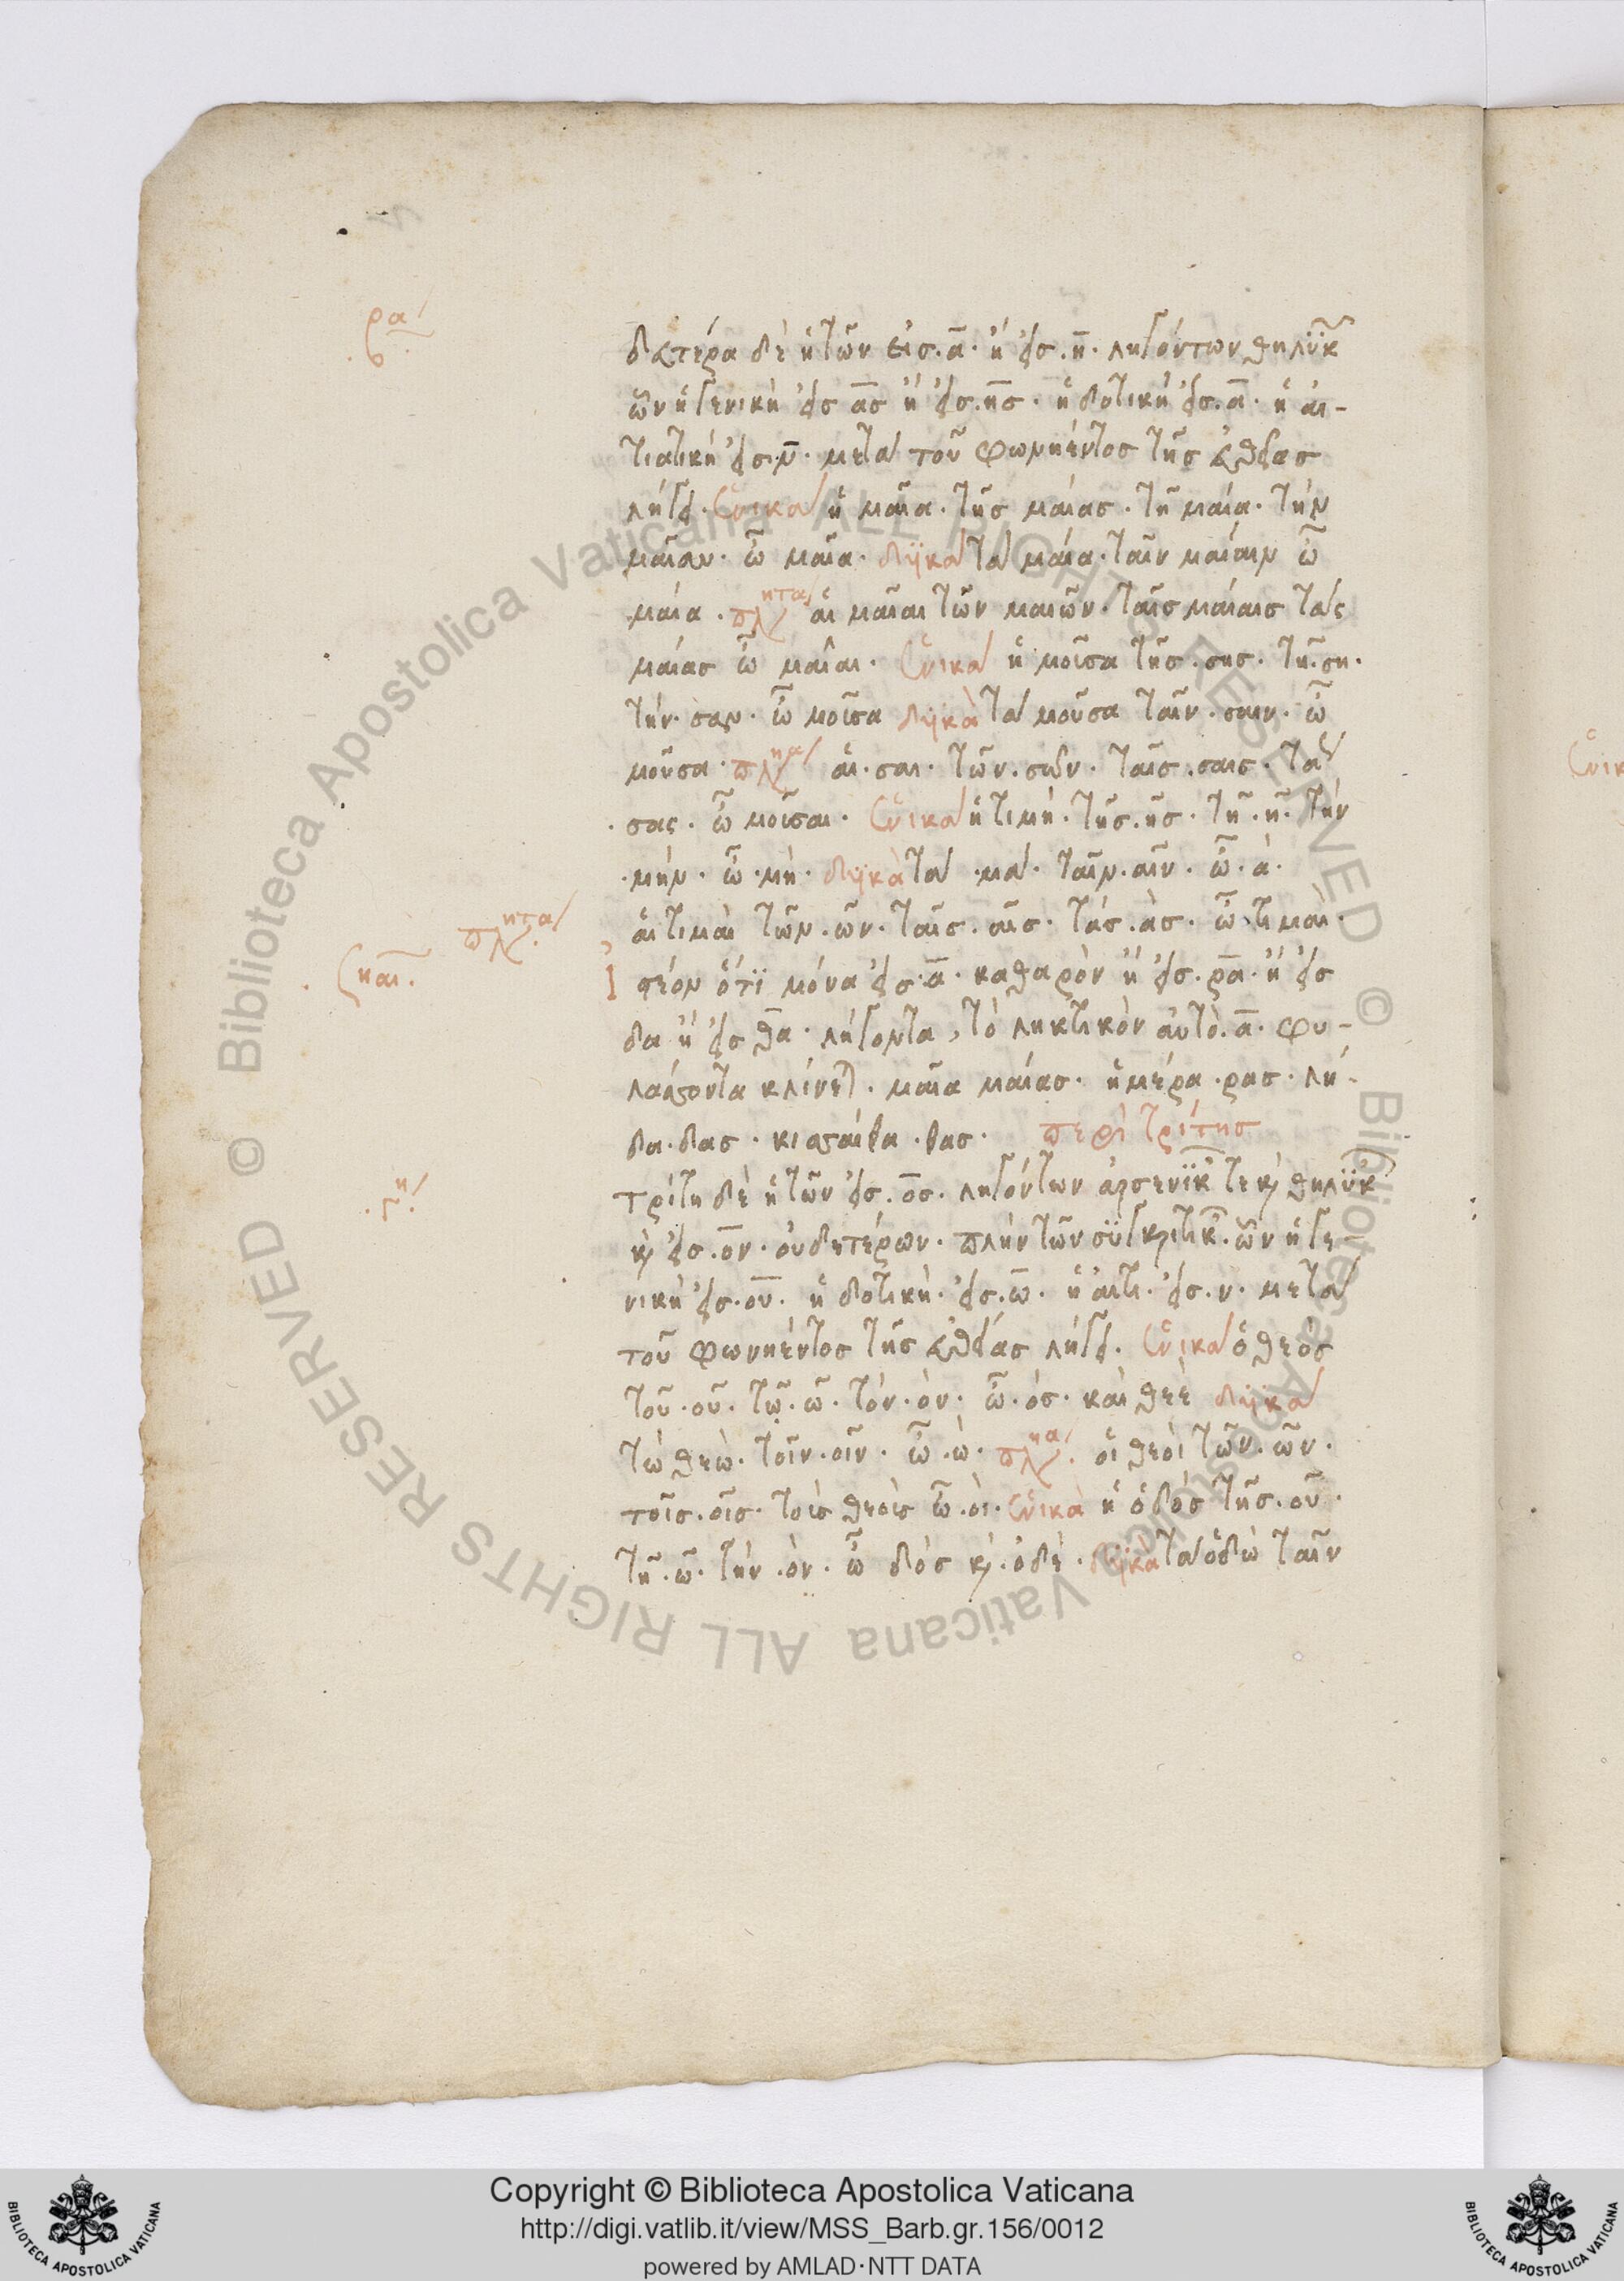 .β.ρα
δευτέρα δὲ ἡ τῶν εἰσ.α̅· ἢ εἰσ.η̅· ληγόντων θηλϋκ
ὧν ἡ γενικὴ εἰσ α̅σ ἢ εἰσ.η̅σ· ἡ δοτικὴ εἰσ.α̅· ἡ αἰ-
τιατικὴ εἰσ.ν̅· μετὰ τοῦ φωνήεντος τῆς εὐθείας
λήγει. ἑνικὰ ἡ μαῖα. τῆς μαίας. τῇ μαία. τὴν
μαῖαν. ὦ μαῖα. δυϊκὰ τὰ μαία. ταῖν μαίαιν ὦ
μαία. πλητα αἱ μαῖαι τῶν μαιῶν. ταῖς μαίαις τὰς
μαίας ὦ μαῖαι. ἑνικὰ ἡ μοῦσα τῆς.σης. τῇ.ση.
τὴν.σαν. ὦ μοῦσα δυϊκὰ τὰ μούσα ταῖν.σαιν. ὦ
μούσα. πληα αἱ.σαι. τῶν.σῶν. ταῖς.σαις. τὰς
.σας. ὦ μοῦσαι. ἑνικὰ ἡ τιμή. τῆς.ῆς. τῇ.ῇ. τὴν
.μήν. ὦ.μή. δυϊκὰ τὰ.μά. ταῖν.αῖν. ὦ.ά.
πλητα
αἱ τιμαὶ τῶν.ῶν. ταῖς.αῖς. τὰς.άς. ὦ τιμαί.
.ζηαι.
Ἰστέον ὅτι μόνα εἰσ.α̅. καθαρὸν ἢ εἰσ.ρα̅. ἢ εἰσ
δα ἢ εἰσ θα̅. λήγοντα, τὸ ληκτικὸν αὐτὸ.α̅. φυ-
λάσσοντα κλίνετ. μαῖα μαίας. ἡμέρα.ρας. Λή-
δα.δας. θας. περὶ τρίτης
.γ.η
τρίτη δὲ ἡ τῶν εἰσ.ο̅ς. ληγόντων ἀρσενϊκ τε κ θηλϋκ
κ εἰσ.ο̅ν. οὐδετέρων. πλὴν τῶν συγκριτικ. ὧν ἡ γε-
νικὴ εἰσ.ου. ἡ δοτικὴ. εἰσ.ω. ἡ αἰτι. εἰσ.ν. μετὰ
τοῦ φωνήεντος τῆς εὐθείας λήγει. ἑνικὰ ὁ θεὸς
τοῦ.οῦ. τῷ.ῶ. τὸν.όν. ὦ.ός. καὶ θεέ δυϊκὰ
τὼ θεώ. τοῖν.οῖν. ὦ.ώ. πληα. οἱ θεοὶ τῶν.ῶν.
τοῖς.οῖς. τοὺς θεοὺς ὦ.οί. ἑνικὰ ἡ ὁδὸς τῆς.οῦ.
τῇ.ῶ. τὴν.όν. ὦ δός κ.ὁδέ. δυϊκὰ τὰ ὁδὼ ταῖν
Copyright © Biblioteca Apostolica Vaticana
http://digi.vatlib.it/view/MSS_Barb.gr.156/0012
powered by AMLAD·NTT DATA
© Biblioteca Apostolica Vaticana ALL RIGHTS RESERVED © Biblioteca Apostolica Vaticana ALL RIGHTS RESERVED
BIBLIOTECA APOSTOLICA VATICANA
BIBLIOTECA APOSTOLICA VATICANA